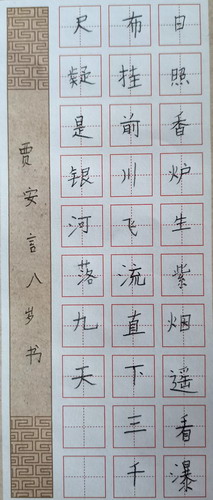 日照香炉生紫烟遥看瀑
布挂前川飞流直下三千
尺疑是银河落九天
贾安言八岁书